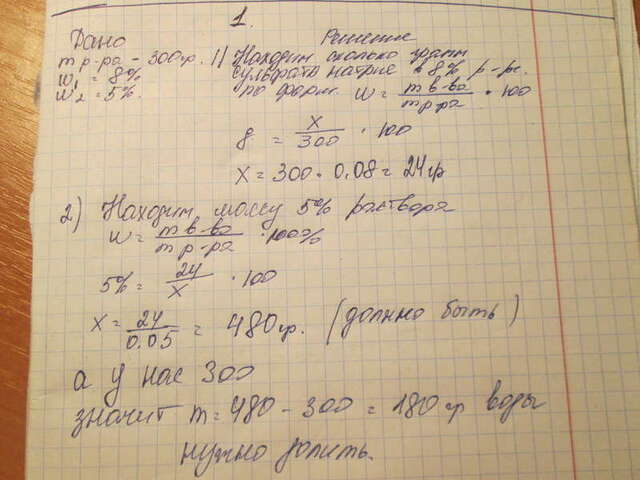 1.
Дано
Решение
m р-ра - 300гр. 1) Находим сколько грамм
w₁ = 8% сульфата натрия в 8% р-ре.
w₂ = 5%. по форм. w = m в-ва / m р-ра · 100
8 = x / 300 · 100
x = 300 · 0,08 = 24гр
2) Находим массу 5% раствора
w = m в-ва / m р-ра · 100%
5% = 24 / x · 100
x = 24 / 0.05 = 480гр. (должно быть)
а у нас 300
значит m = 480 - 300 = 180гр воды
нужно долить.